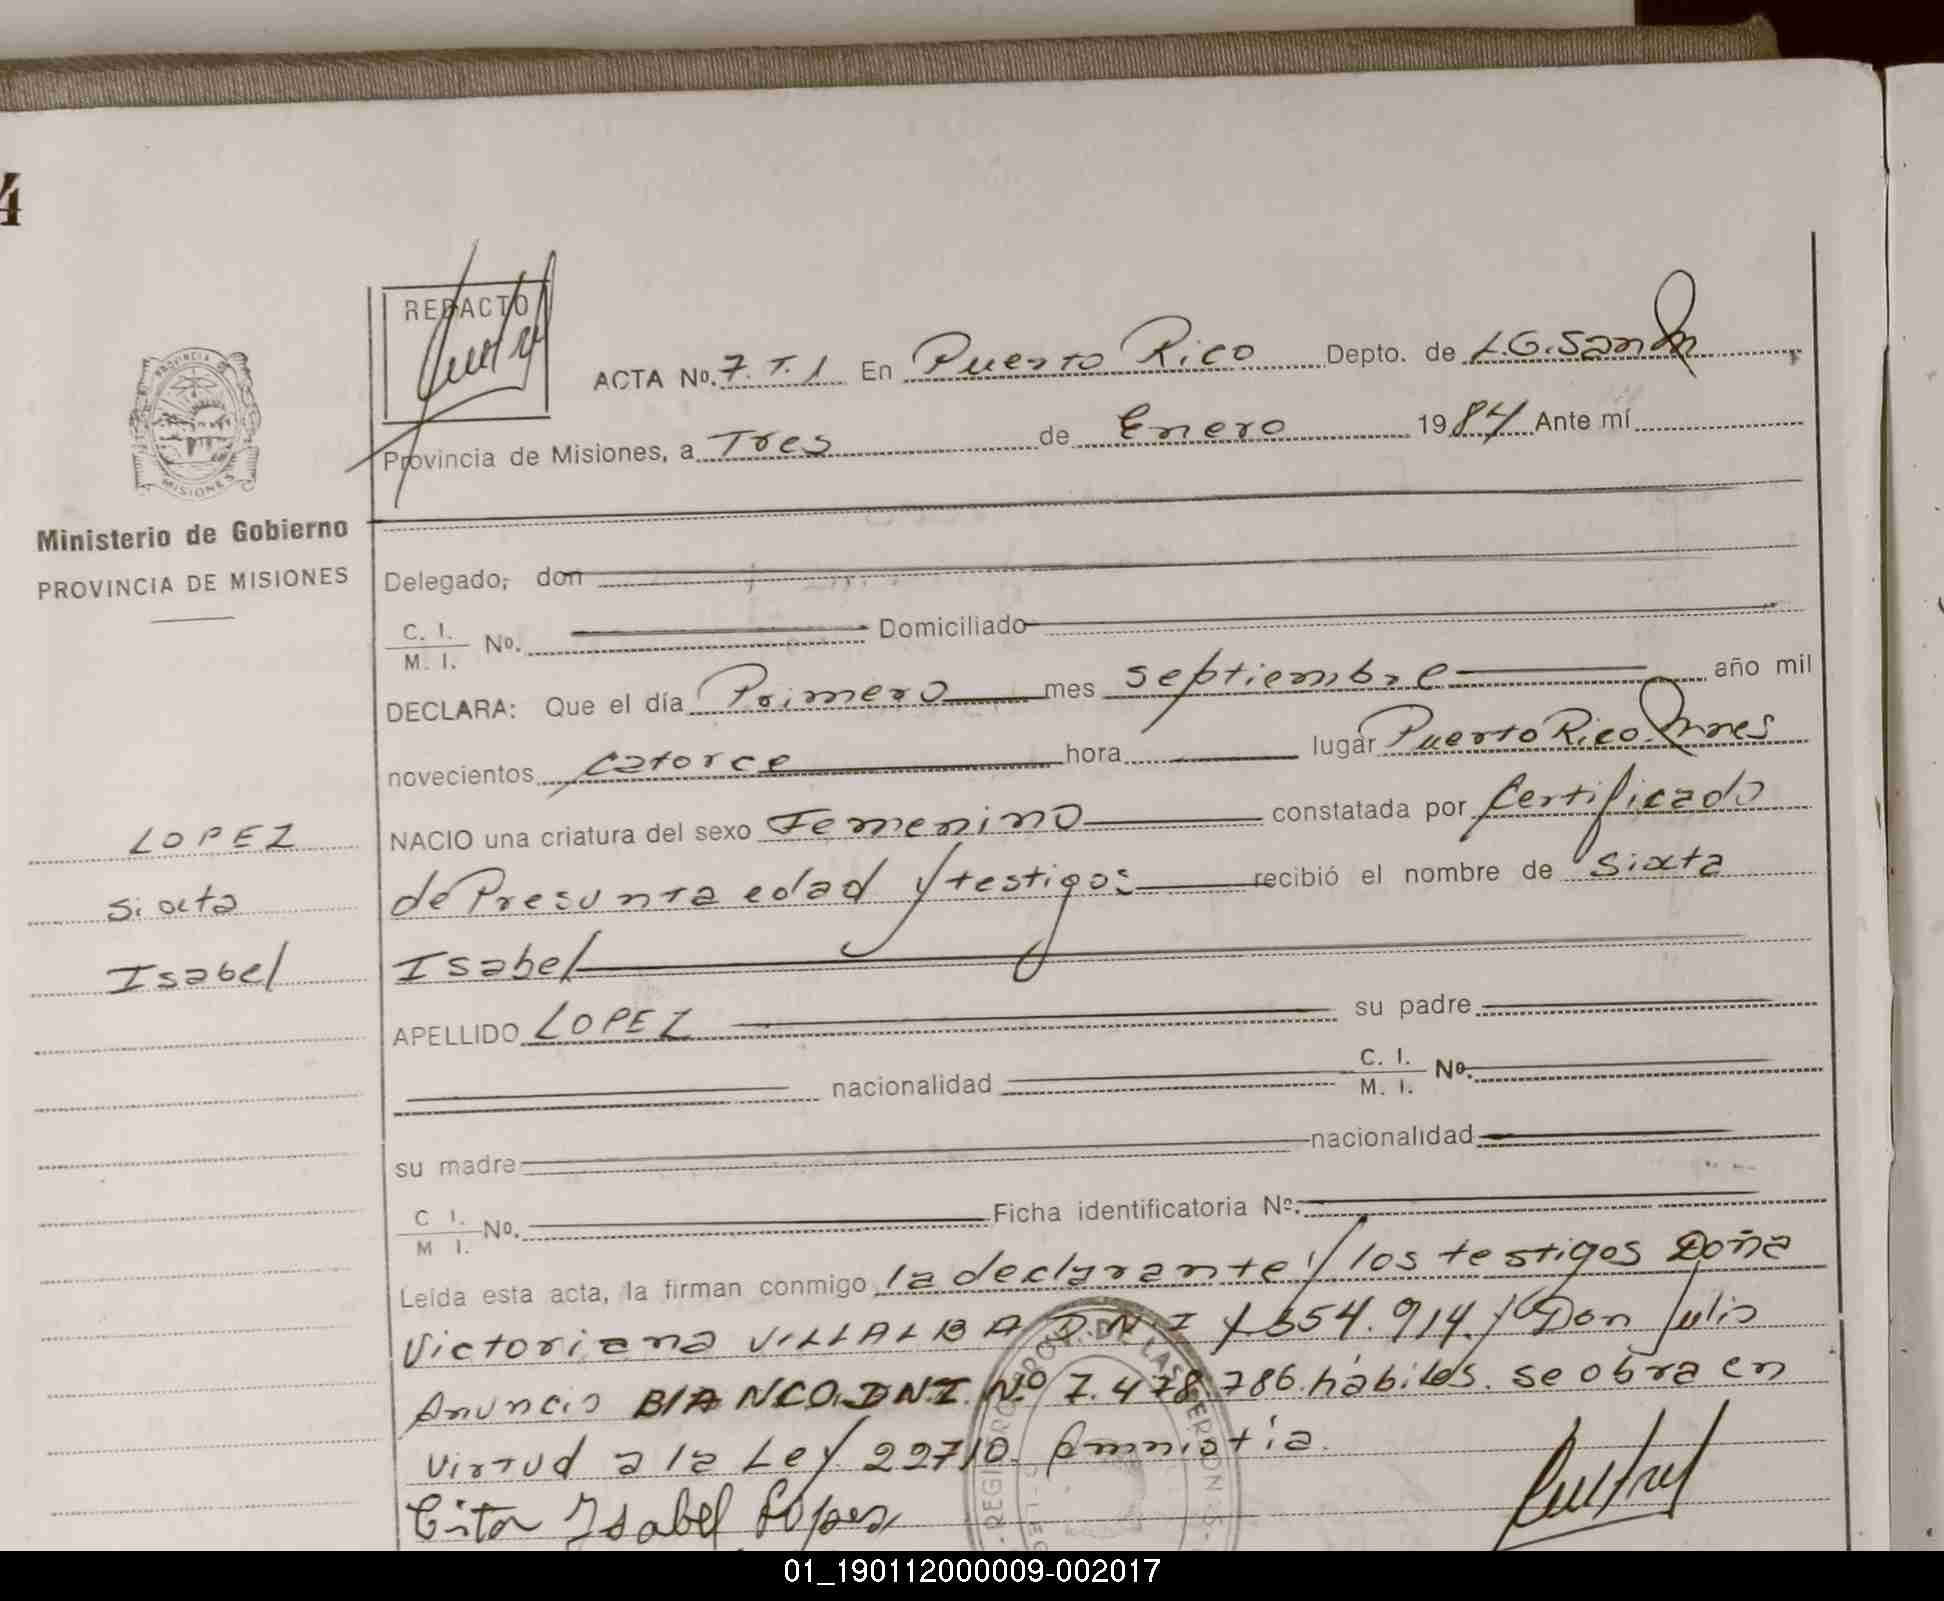 4
REDACTO
ACTA No. 7. T. 1 En Puerto Rico Depto. de L.G.San M
Provincia de Misiones, a Tres de Enero 1984 Ante mí
Ministerio de Gobierno
PROVINCIA DE MISIONES
Delegado, don
C. I.
M. I. No. Domiciliado
DECLARA: Que el día Primero mes septiembre año mil
novecientos catorce hora lugar Puerto Rico Mnes
NACIO una criatura del sexo Femenino constatada por Certificado
de Presunta edad y testigos recibió el nombre de Sixta
Isabel
LOPEZ
Sixta
Isabel
APELLIDO LOPEZ su padre
nacionalidad C. I.
M. I. No.
su madre nacionalidad
C I.
M I. No. Ficha identificatoria No.
Leída esta acta, la firman conmigo la declarante y los testigos Doña
Victoriana VILLALBA D.N.I 654.914. y Don Julio
Anuncio BIANCO.DNI.No 7.478.786.hábiles. se obra en
virtud a la Ley 22710. Amnistia.
Isabel Lopez
PROVINCIA DE MISIONES
01_190112000009-002017